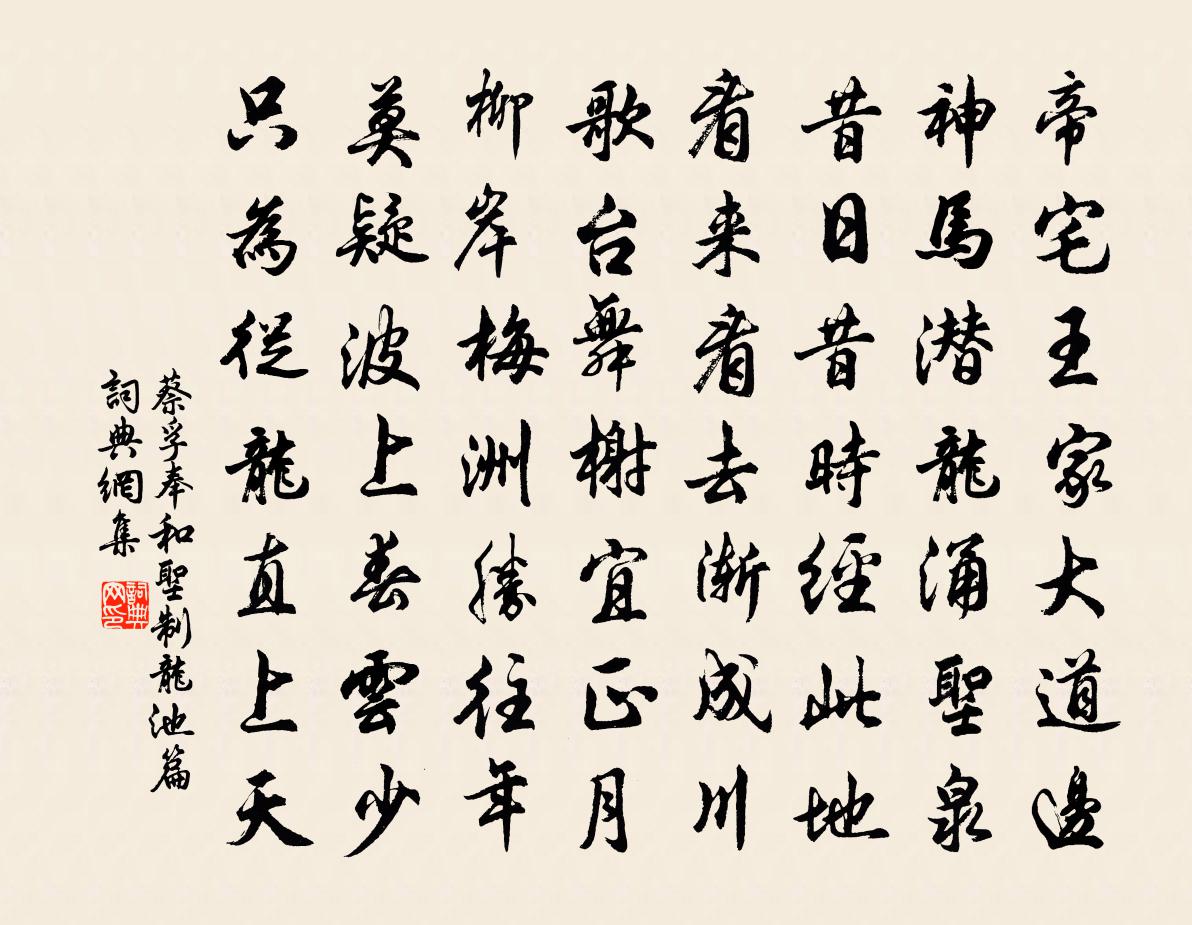 帝宅王家大道邊
神馬潜龍涌聖泉
昔日昔時經此地
看来看去漸成川
歌台舞榭宜正月
柳岸梅洲勝往年
莫疑波上春雲少
只為從龍直上天
蔡孚奉和聖制龍池篇
詞典網集
詞典网印